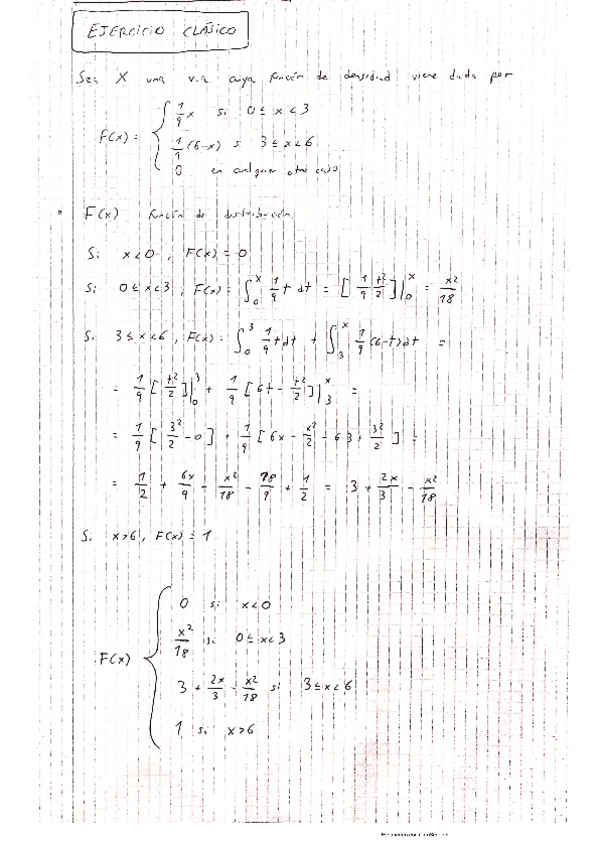 EJERCICIO CLÁSICO
Sea X una v.a cuya función de densidad viene dada por
F(x) = { 1/9 x si 0 ≤ x < 3
1/9 (6-x) si 3 ≤ x < 6
0 en cualquier otro caso
• F(x) función de distribución
Si x < 0, F(x) = 0
Si 0 ≤ x < 3, F(x) = ∫₀ˣ 1/9 t dt = [1/9 t²/2]|₀ˣ = x²/18
Si 3 ≤ x < 6, F(x) = ∫₀³ 1/9 t dt + ∫₃ˣ 1/9 (6-t) dt =
= 1/9 [t²/2]|₀³ + 1/9 [6t - t²/2]|₃ˣ =
= 1/9 [3²/2 - 0] + 1/9 [6x - x²/2 - 6·3 + 3²/2] =
= 1/2 + 6x/9 - x²/18 - 18/9 + 1/2 = 3 + 2x/3 - x²/18
Si x > 6, F(x) = 1
F(x) { 0 si x < 0
x²/18 si 0 ≤ x < 3
3 + 2x/3 - x²/18 si 3 ≤ x < 6
1 si x > 6